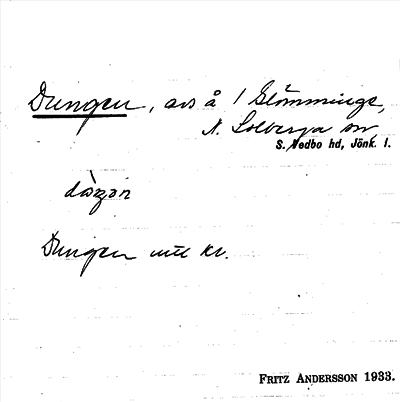 Dungen, avs å 1 Glömminge,
N. Solberga sn,
S. Vedbo hd, Jönk. l.
dàŋən
Dungen intill kv.
FRITZ ANDERSSON 1933.